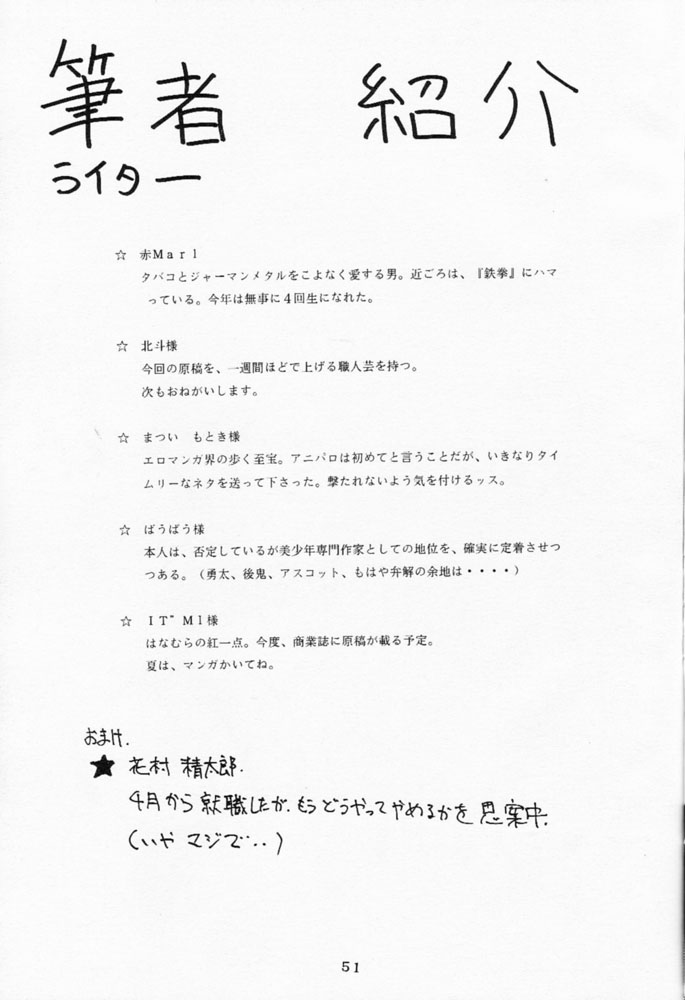 筆者 紹介
ライター
☆ 赤Marl
タバコとジャーマンメタルをこよなく愛する男。近ごろは、『鉄拳』にハマ
っている。今年は無事に4回生になれた。
☆ 北斗様
今回の原稿を、一週間ほどで上げる職人芸を持つ。
次もおねがいします。
☆ まつい もとき様
エロマンガ界の歩く至宝。アニパロは初めてと言うことだが、いきなりタイ
ムリーなネタを送って下さった。撃たれないよう気を付けるッス。
☆ ばうばう様
本人は、否定しているが美少年専門作家としての地位を、確実に定着させつ
つある。(勇太、後鬼、アスコット、もはや弁解の余地は・・・・)
☆ IT"Ml様
はなむらの紅一点。今度、商業誌に原稿が載る予定。
夏は、マンガかいてね。
おまけ.
★ 花村 精太郎.
4月から就職したが、もうどうやってやめるかを思案中.
(いや マジで・・)
51